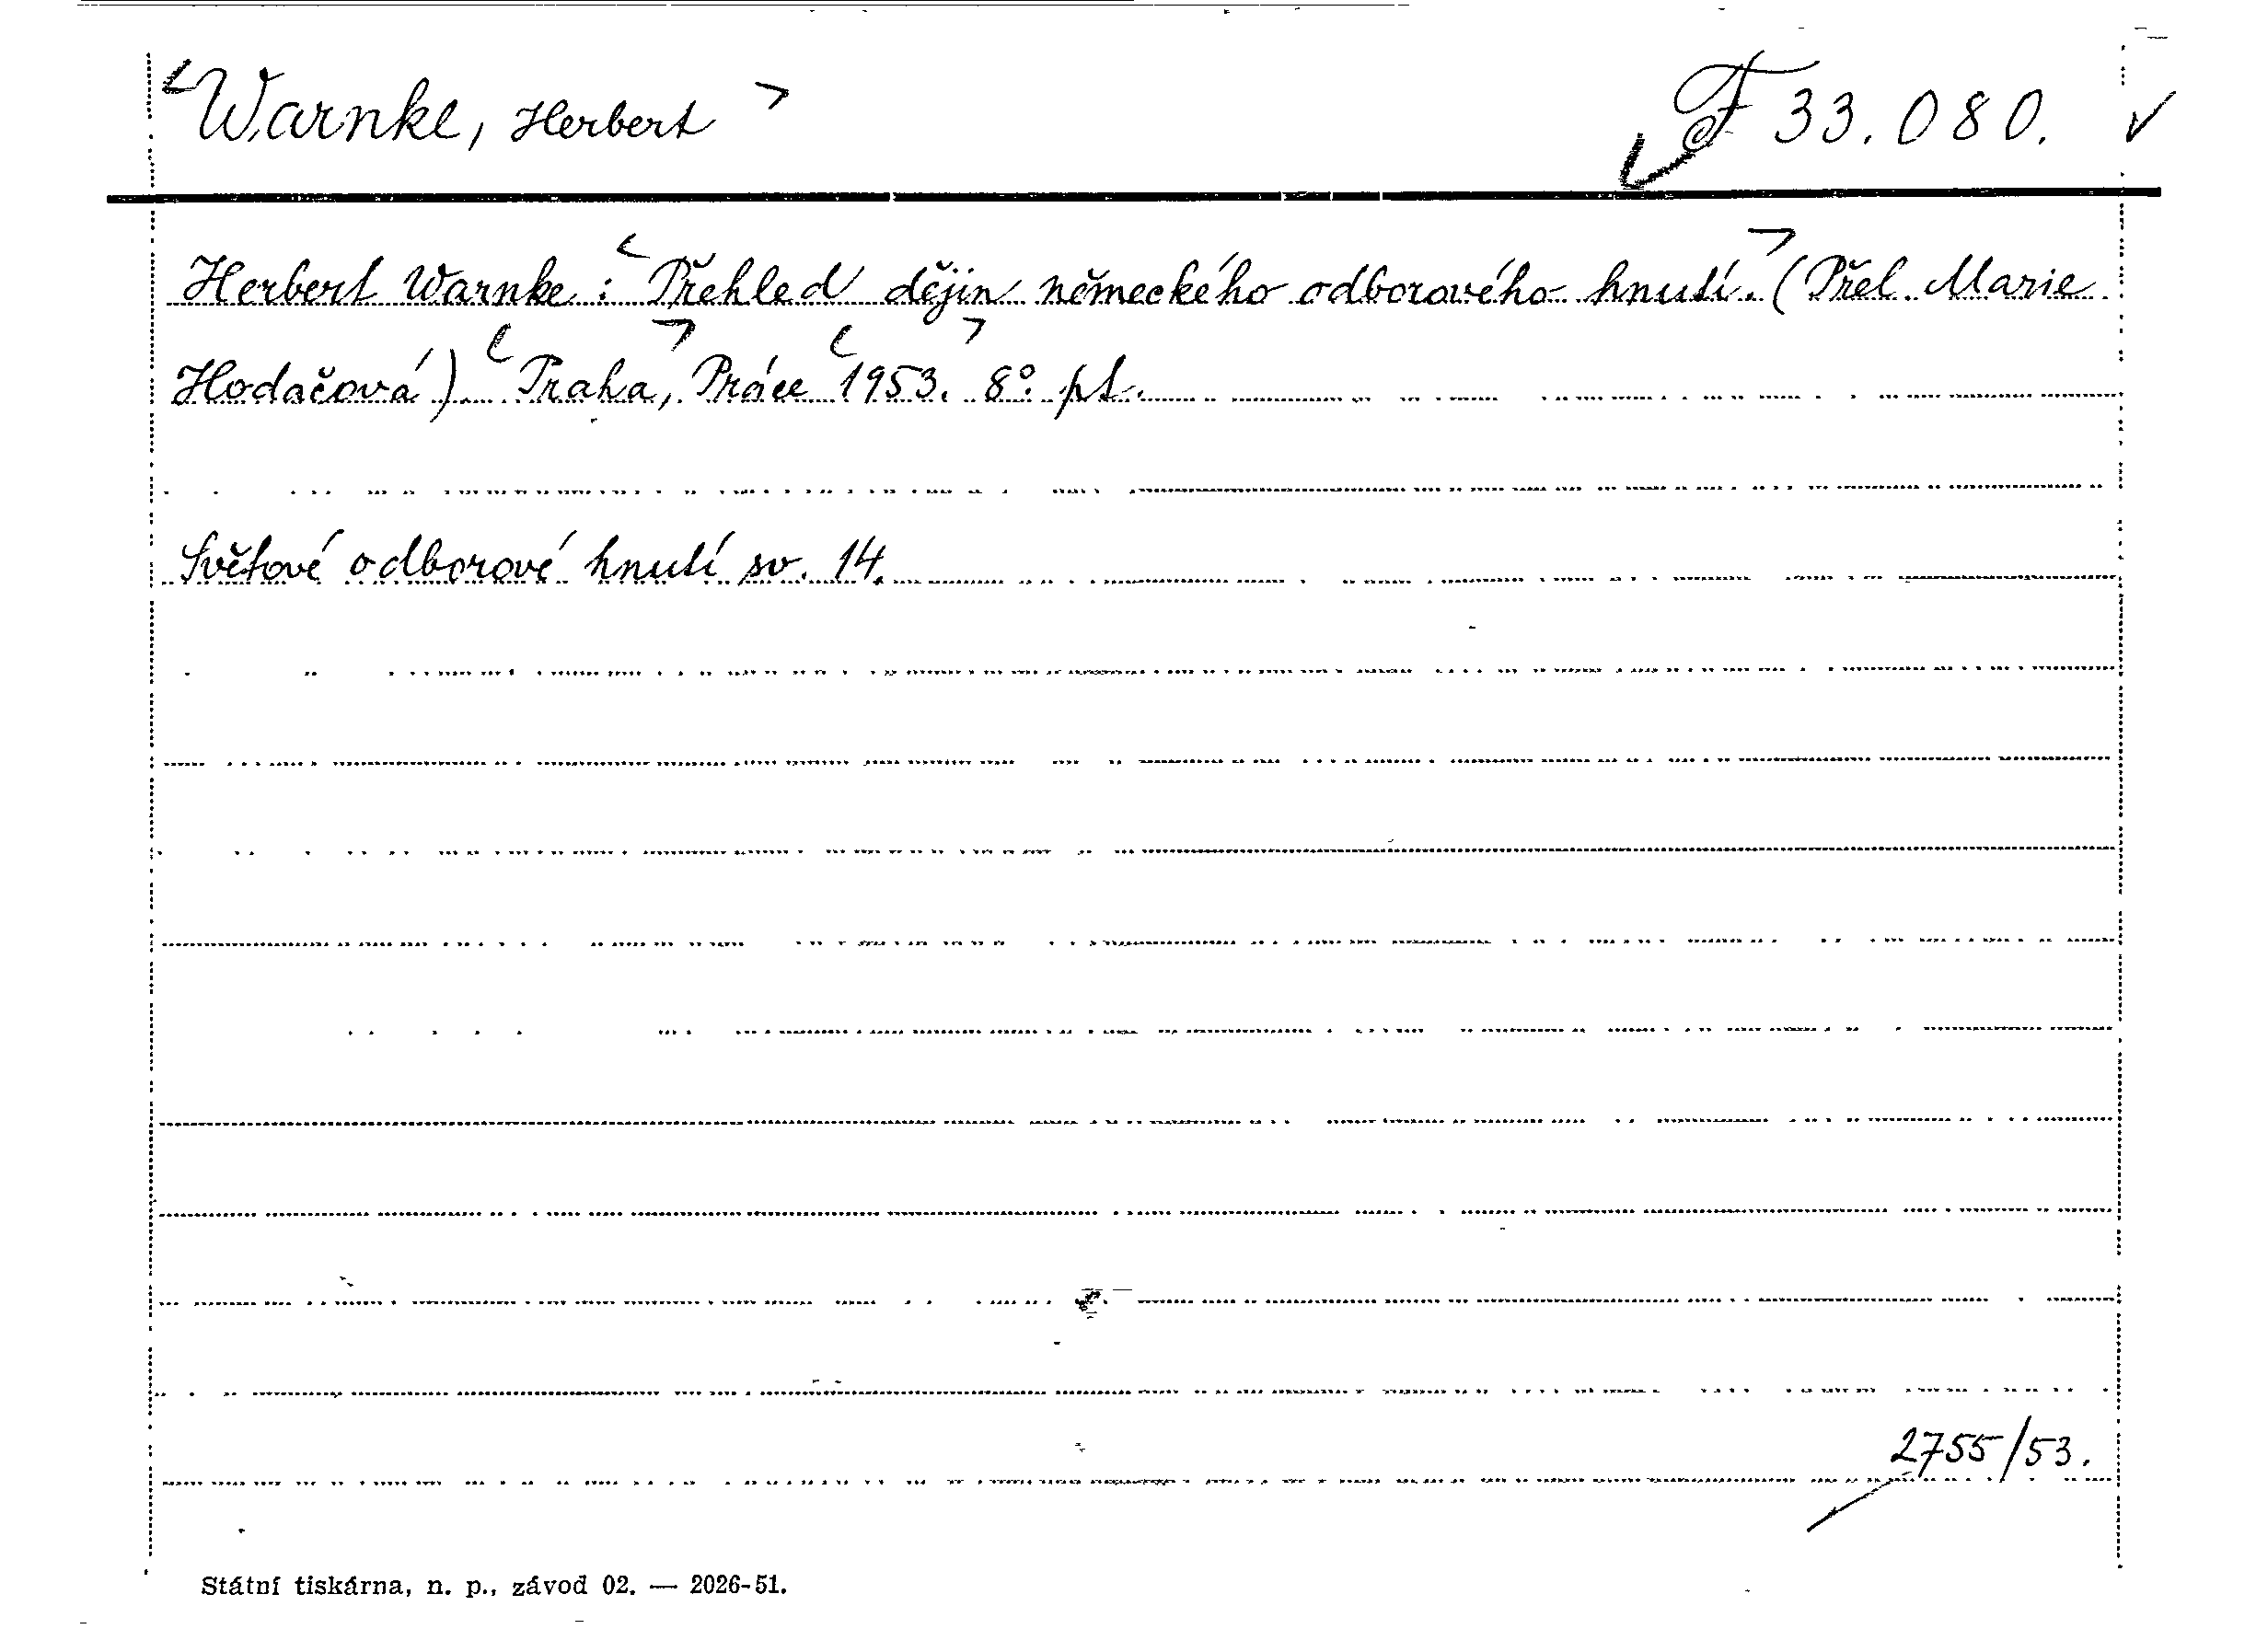 Warnke, Herbert
F 33.080.
Herbert Warnke: Přehled dějin německého odborového hnutí. (Přel. Marie
Hodačová). Praha, Práce 1953. 8°. pt.
Světové odborové hnutí sv. 14.
2755/53.
Státní tiskárna, n. p., závod 02. — 2026-51.